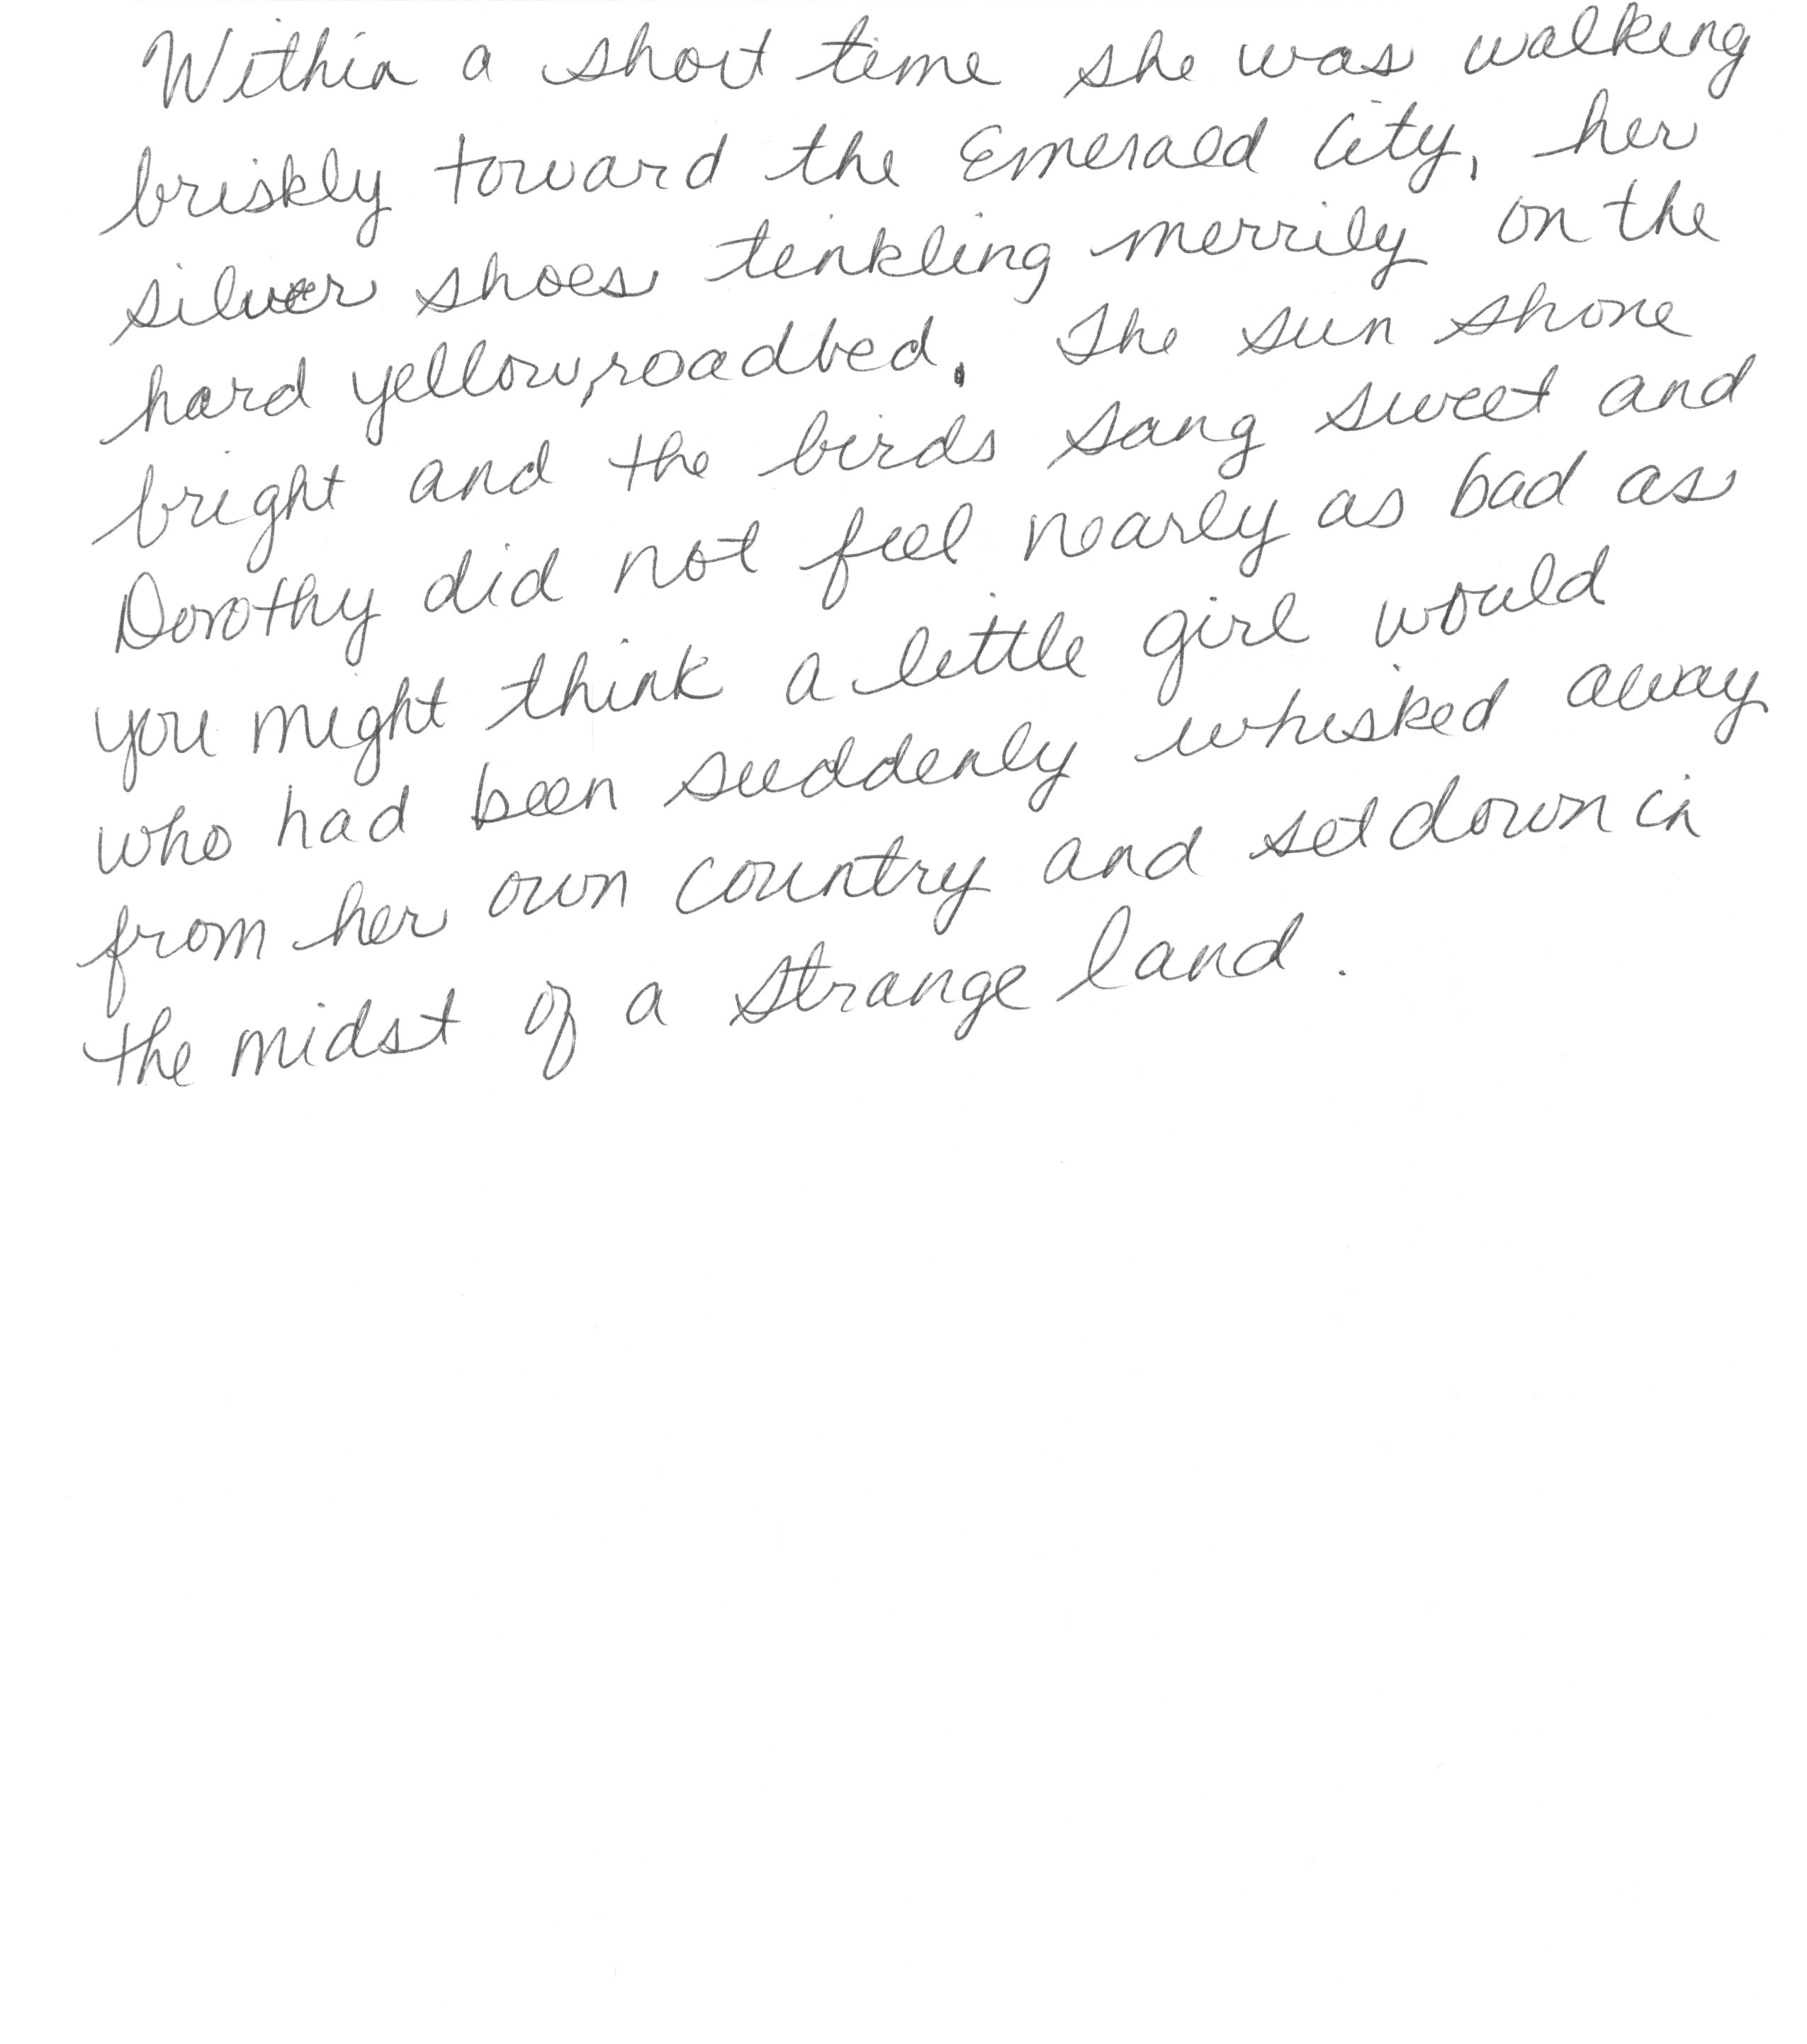 Within a short time she was walking
briskly toward the Emerald City, her
silver shoes tinkling merrily on the
hard yellow, roadbed. The sun shone
bright and the birds sang sweet and
Dorothy did not feel nearly as bad as
you might think a little girl would
who had been suddenly whisked away
from her own country and set down in
the midst of a strange land.